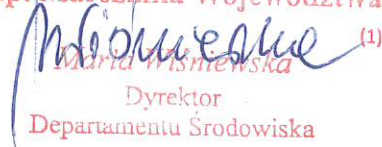 Marszałka Województwa
(1)
Maria Wiśniewska
Dyrektor
Departamentu Środowiska